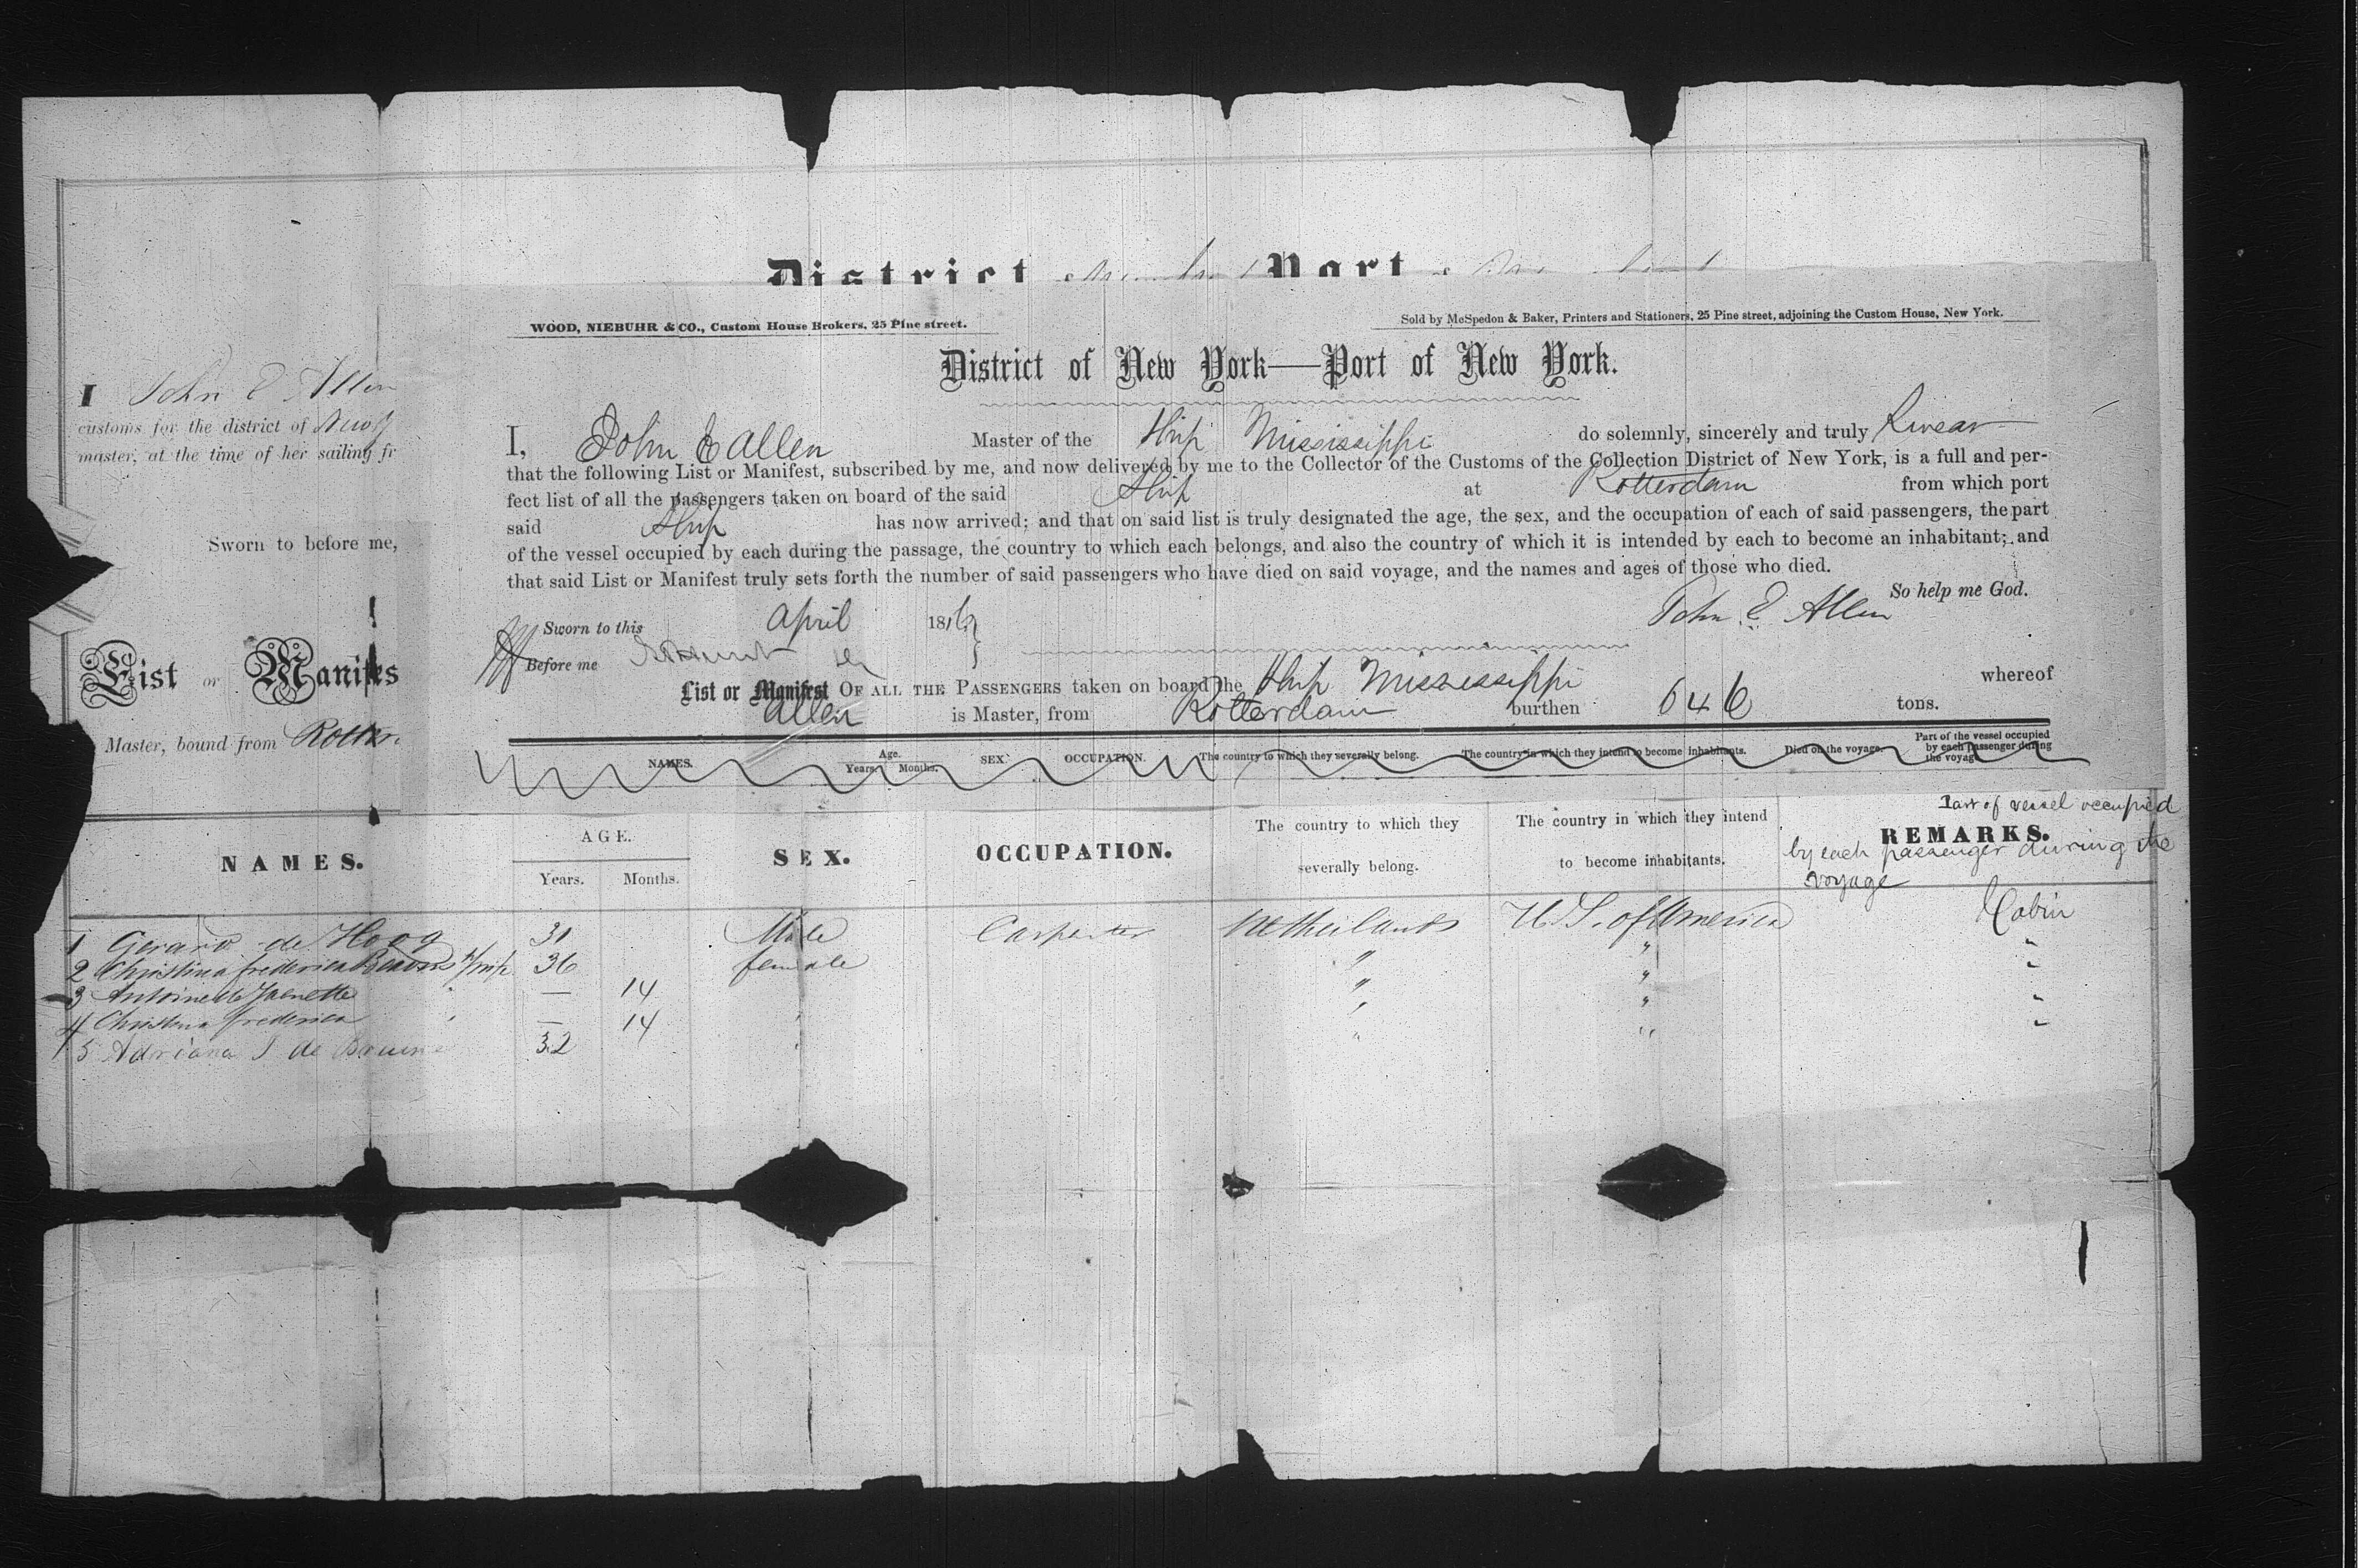 District Port
WOOD, NIEBUHR & CO., Custom House Brokers, 25 Pine street.
Sold by McSpedon & Baker, Printers and Stationers, 25 Pine street, adjoining the Custom House, New York.
District of New York—Port of New York.
I John E Allen
customs for the district of
master, at the time of her sailing fr
Sworn to before me,
List or Manifes
Master, bound from Rotter
I, John E Allen Master of the Ship Mississippi do solemnly, sincerely and truly Swear
that the following List or Manifest, subscribed by me, and now delivered by me to the Collector of the Customs of the Collection District of New York, is a full and per-
fect list of all the passengers taken on board of the said Ship at Rotterdam from which port
said Ship has now arrived; and that on said list is truly designated the age, the sex, and the occupation of each of said passengers, the part
of the vessel occupied by each during the passage, the country to which each belongs, and also the country of which it is intended by each to become an inhabitant; and
that said List or Manifest truly sets forth the number of said passengers who have died on said voyage, and the names and ages of those who died.
So help me God.
Sworn to this April 186 John E Allen
Before me
List or Manifest OF ALL THE PASSENGERS taken on board the Ship Mississippi whereof
Allen is Master, from Rotterdam burthen 646 tons.
NAMES. Age. Years. Months. SEX. OCCUPATION. The country to which they severally belong. The country in which they intend to become inhabitants. Died on the voyage. Part of the vessel occupied by each passenger during the voyage
NAMES. AGE. Years. Months. SEX. OCCUPATION. The country to which they severally belong. The country in which they intend to become inhabitants. REMARKS.
Part of vessel occupied
by each passenger during the
voyage
1 Gerard de Hoog 31 Male Carpenter Netherlands U.S. of America Cabin
2 Christina frederica 36 female " " "
3 Antoinette — 14 " " "
4 Christina frederica — 14 " " "
5 Adriana J de Bruine 32 " " "